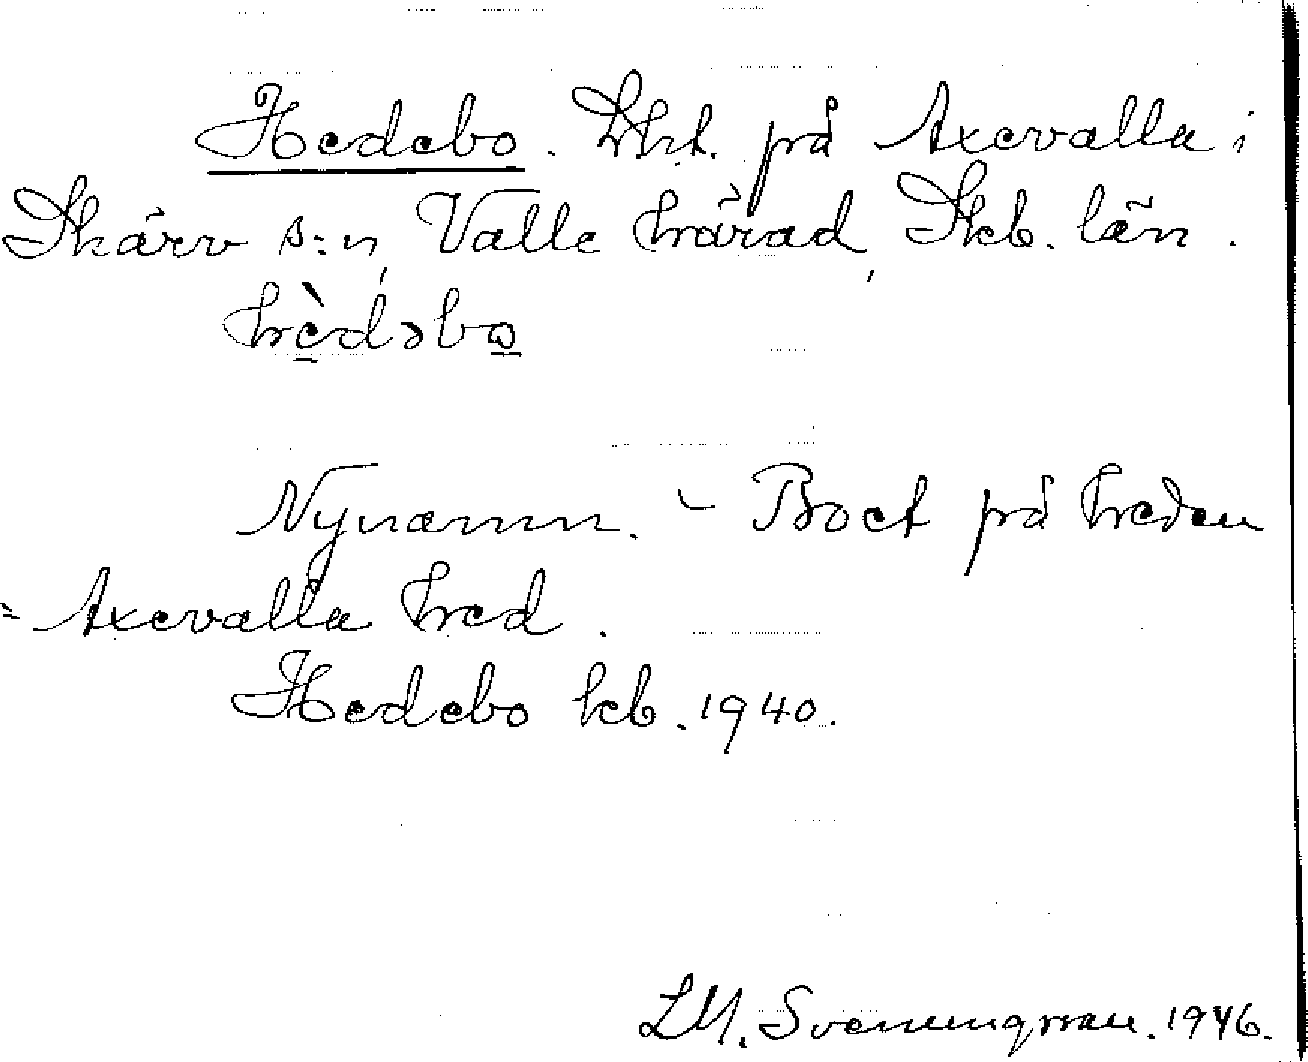 Hedebo. Lht. på Axevalla i
Skärv s:n, Valle härad, Skb. län.
hèdəbo
Nynamn. - Boet på heden
= Axevalla hed.
Hedebo kb. 1940.
LM. Svenungsson. 1946.